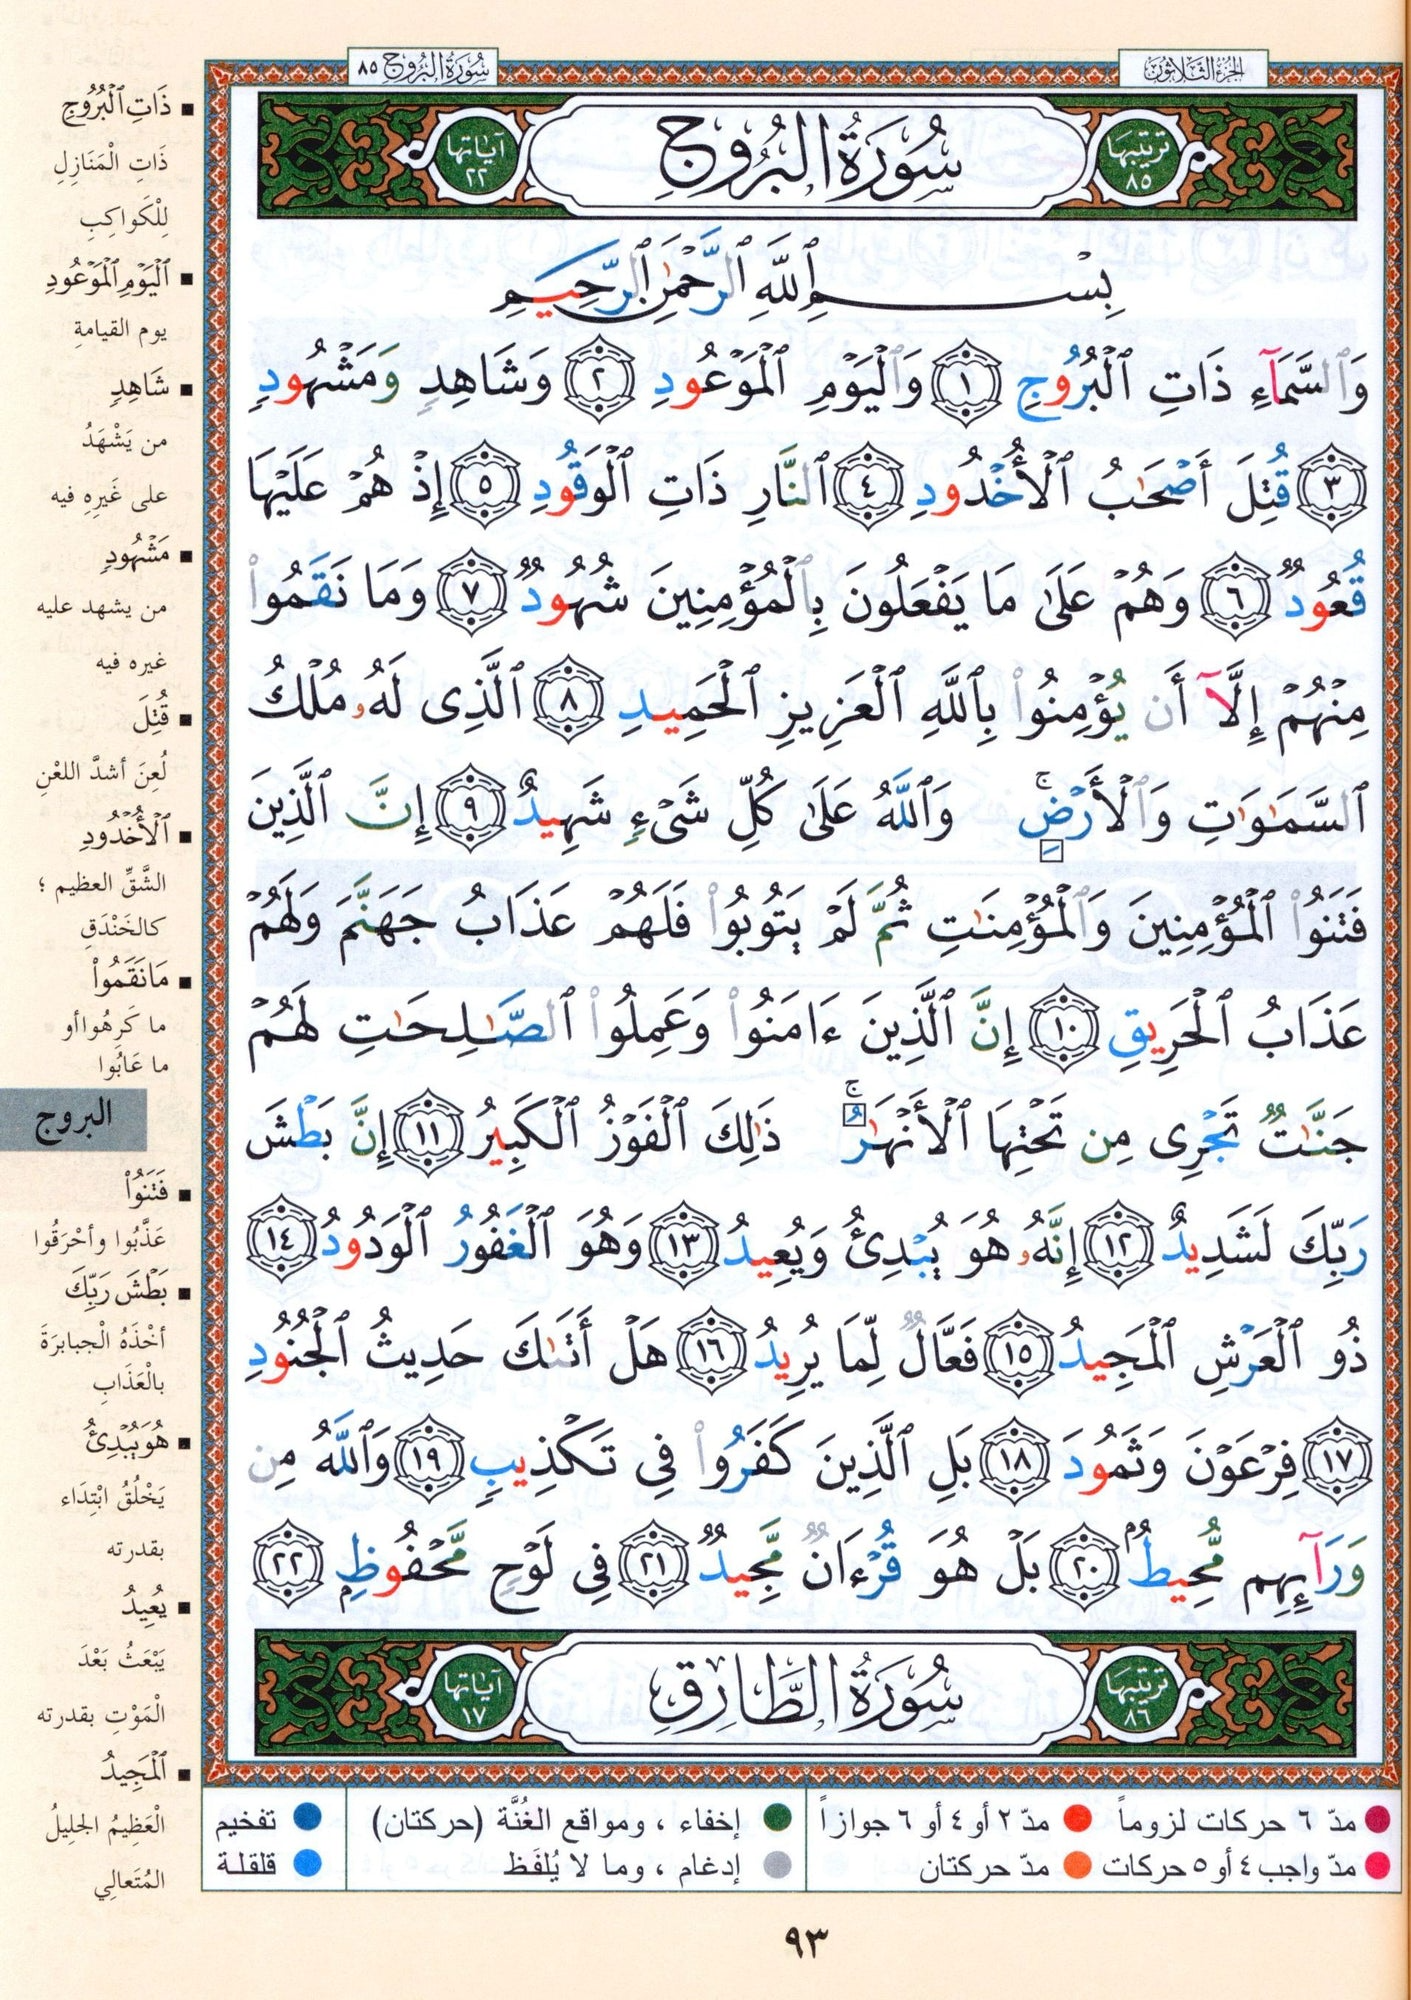 الجزء الثلاثون
سورة البروج ٨٥
ترتيبها ٨٥
سُورَةُ البُرُوجِ
آياتها ٢٢
بِسْمِ ٱللَّهِ ٱلرَّحْمَٰنِ ٱلرَّحِيمِ
وَٱلسَّمَآءِ ذَاتِ ٱلْبُرُوجِ ١ وَٱلْيَوْمِ ٱلْمَوْعُودِ ٢ وَشَاهِدٍ وَمَشْهُودٍ
٣ قُتِلَ أَصْحَٰبُ ٱلْأُخْدُودِ ٤ ٱلنَّارِ ذَاتِ ٱلْوَقُودِ ٥ إِذْ هُمْ عَلَيْهَا
قُعُودٌ ٦ وَهُمْ عَلَىٰ مَا يَفْعَلُونَ بِٱلْمُؤْمِنِينَ شُهُودٌ ٧ وَمَا نَقَمُوا۟
مِنْهُمْ إِلَّآ أَن يُؤْمِنُوا۟ بِٱللَّهِ ٱلْعَزِيزِ ٱلْحَمِيدِ ٨ ٱلَّذِى لَهُۥ مُلْكُ
ٱلسَّمَٰوَٰتِ وَٱلْأَرْضِ ۚ وَٱللَّهُ عَلَىٰ كُلِّ شَىْءٍ شَهِيدٌ ٩ إِنَّ ٱلَّذِينَ
فَتَنُوا۟ ٱلْمُؤْمِنِينَ وَٱلْمُؤْمِنَٰتِ ثُمَّ لَمْ يَتُوبُوا۟ فَلَهُمْ عَذَابُ جَهَنَّمَ وَلَهُمْ
عَذَابُ ٱلْحَرِيقِ ١٠ إِنَّ ٱلَّذِينَ ءَامَنُوا۟ وَعَمِلُوا۟ ٱلصَّٰلِحَٰتِ لَهُمْ
جَنَّٰتٌ تَجْرِى مِن تَحْتِهَا ٱلْأَنْهَٰرُ ۚ ذَٰلِكَ ٱلْفَوْزُ ٱلْكَبِيرُ ١١ إِنَّ بَطْشَ
رَبِّكَ لَشَدِيدٌ ١٢ إِنَّهُۥ هُوَ يُبْدِئُ وَيُعِيدُ ١٣ وَهُوَ ٱلْغَفُورُ ٱلْوَدُودُ ١٤
ذُو ٱلْعَرْشِ ٱلْمَجِيدُ ١٥ فَعَّالٌ لِّمَا يُرِيدُ ١٦ هَلْ أَتَىٰكَ حَدِيثُ ٱلْجُنُودِ
١٧ فِرْعَوْنَ وَثَمُودَ ١٨ بَلِ ٱلَّذِينَ كَفَرُوا۟ فِى تَكْذِيبٍ ١٩ وَٱللَّهُ مِن
وَرَآئِهِم مُّحِيطٌۢ ٢٠ بَلْ هُوَ قُرْءَانٌ مَّجِيدٌ ٢١ فِى لَوْحٍ مَّحْفُوظٍۭ ٢٢
ترتيبها ٨٦
سُورَةُ الطَّارِقِ
آياتها ١٧
ذَاتِ ٱلْبُرُوجِ
ذَاتِ الْمَنَازِلِ
لِلْكَواكِبِ
ٱلْيَوْمِ ٱلْمَوْعُودِ
يوم القيامةِ
شَاهِدٍ
من يَشْهَدُ
على غَيرِهِ فيه
مَشْهُودٍ
من يشهد عليه
غيره فيه
قُتِلَ
لُعِنَ أشدَّ اللعْنِ
ٱلْأُخْدُودِ
الشَّقِّ العظيم ؛
كالخَنْدَقِ
مَا نَقَمُوا۟
ما كَرِهُوا أو
ما عَابُوا
البروج
فَتَنُوا۟
عَذَّبُوا وأحْرَقُوا
بَطْشَ رَبِّكَ
أخْذَهُ الْجبابرَةَ
بالْعَذَابِ
هُوَ يُبْدِئُ
يَخْلُقُ ابْتِدَاء
بقدرته
يُعِيدُ
يَبْعَثُ بَعْدَ
الْمَوْتِ بقدرته
ٱلْمَجِيدُ
الْعَظِيمُ الجلِيلُ
المُتَعالِي
مدّ ٦ حركات لزوماً مدّ ٢ أو ٤ أو ٦ جوازاً
مدّ واجب ٤ أو ٥ حركات مدّ حركتان
إخفاء ، ومواقع الغُنَّة (حركتان)
إدغام ، وما لا يُلفَظ
تفخيم
قلقلة
٩٣